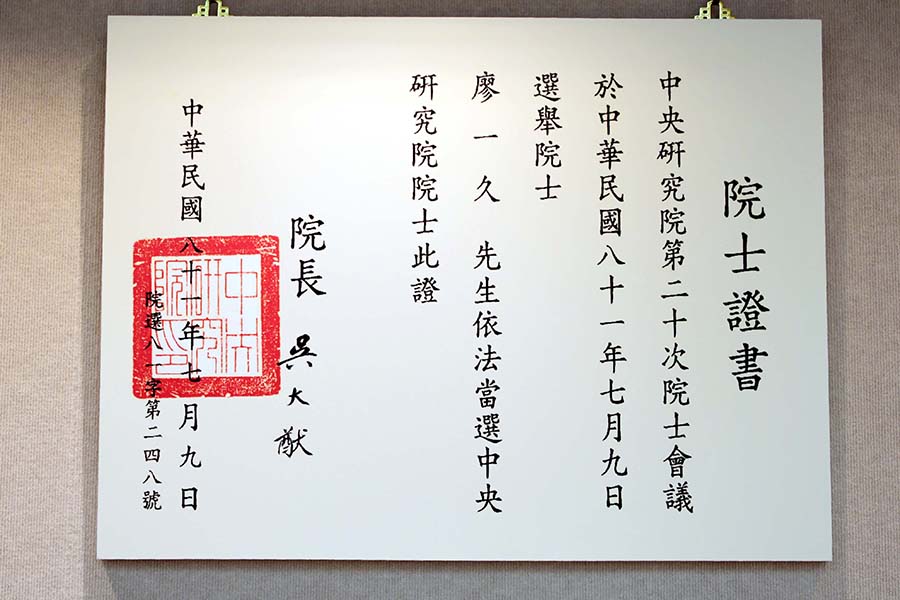 院士證書
中央研究院第二十次院士會議
於中華民國八十一年七月九日
選舉院士
廖一久 先生依法當選中央
研究院院士此證
院長 吳大猷
中華民國八十一年七月九日
院選八一字第二四八號
中央研究院印